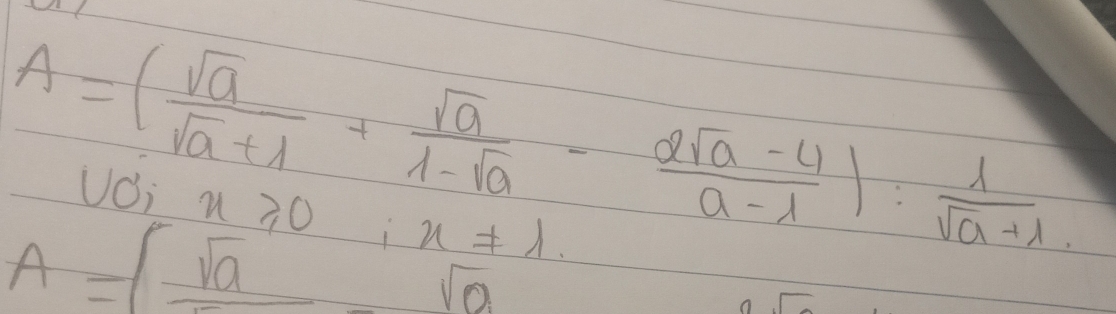 A = ( √a / √a + 1 + √a / 1 - √a - 2√a - 4 / a - 1 ) : 1 / √a + 1 .
Với x ≥ 0 ; x ≠ 1.
A = ( √a - √a